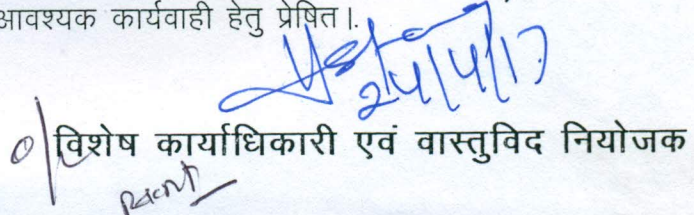 आवश्यक कार्यवाही हेतु प्रेषित।
24/4/17
विशेष कार्याधिकारी एवं वास्तुविद नियोजक